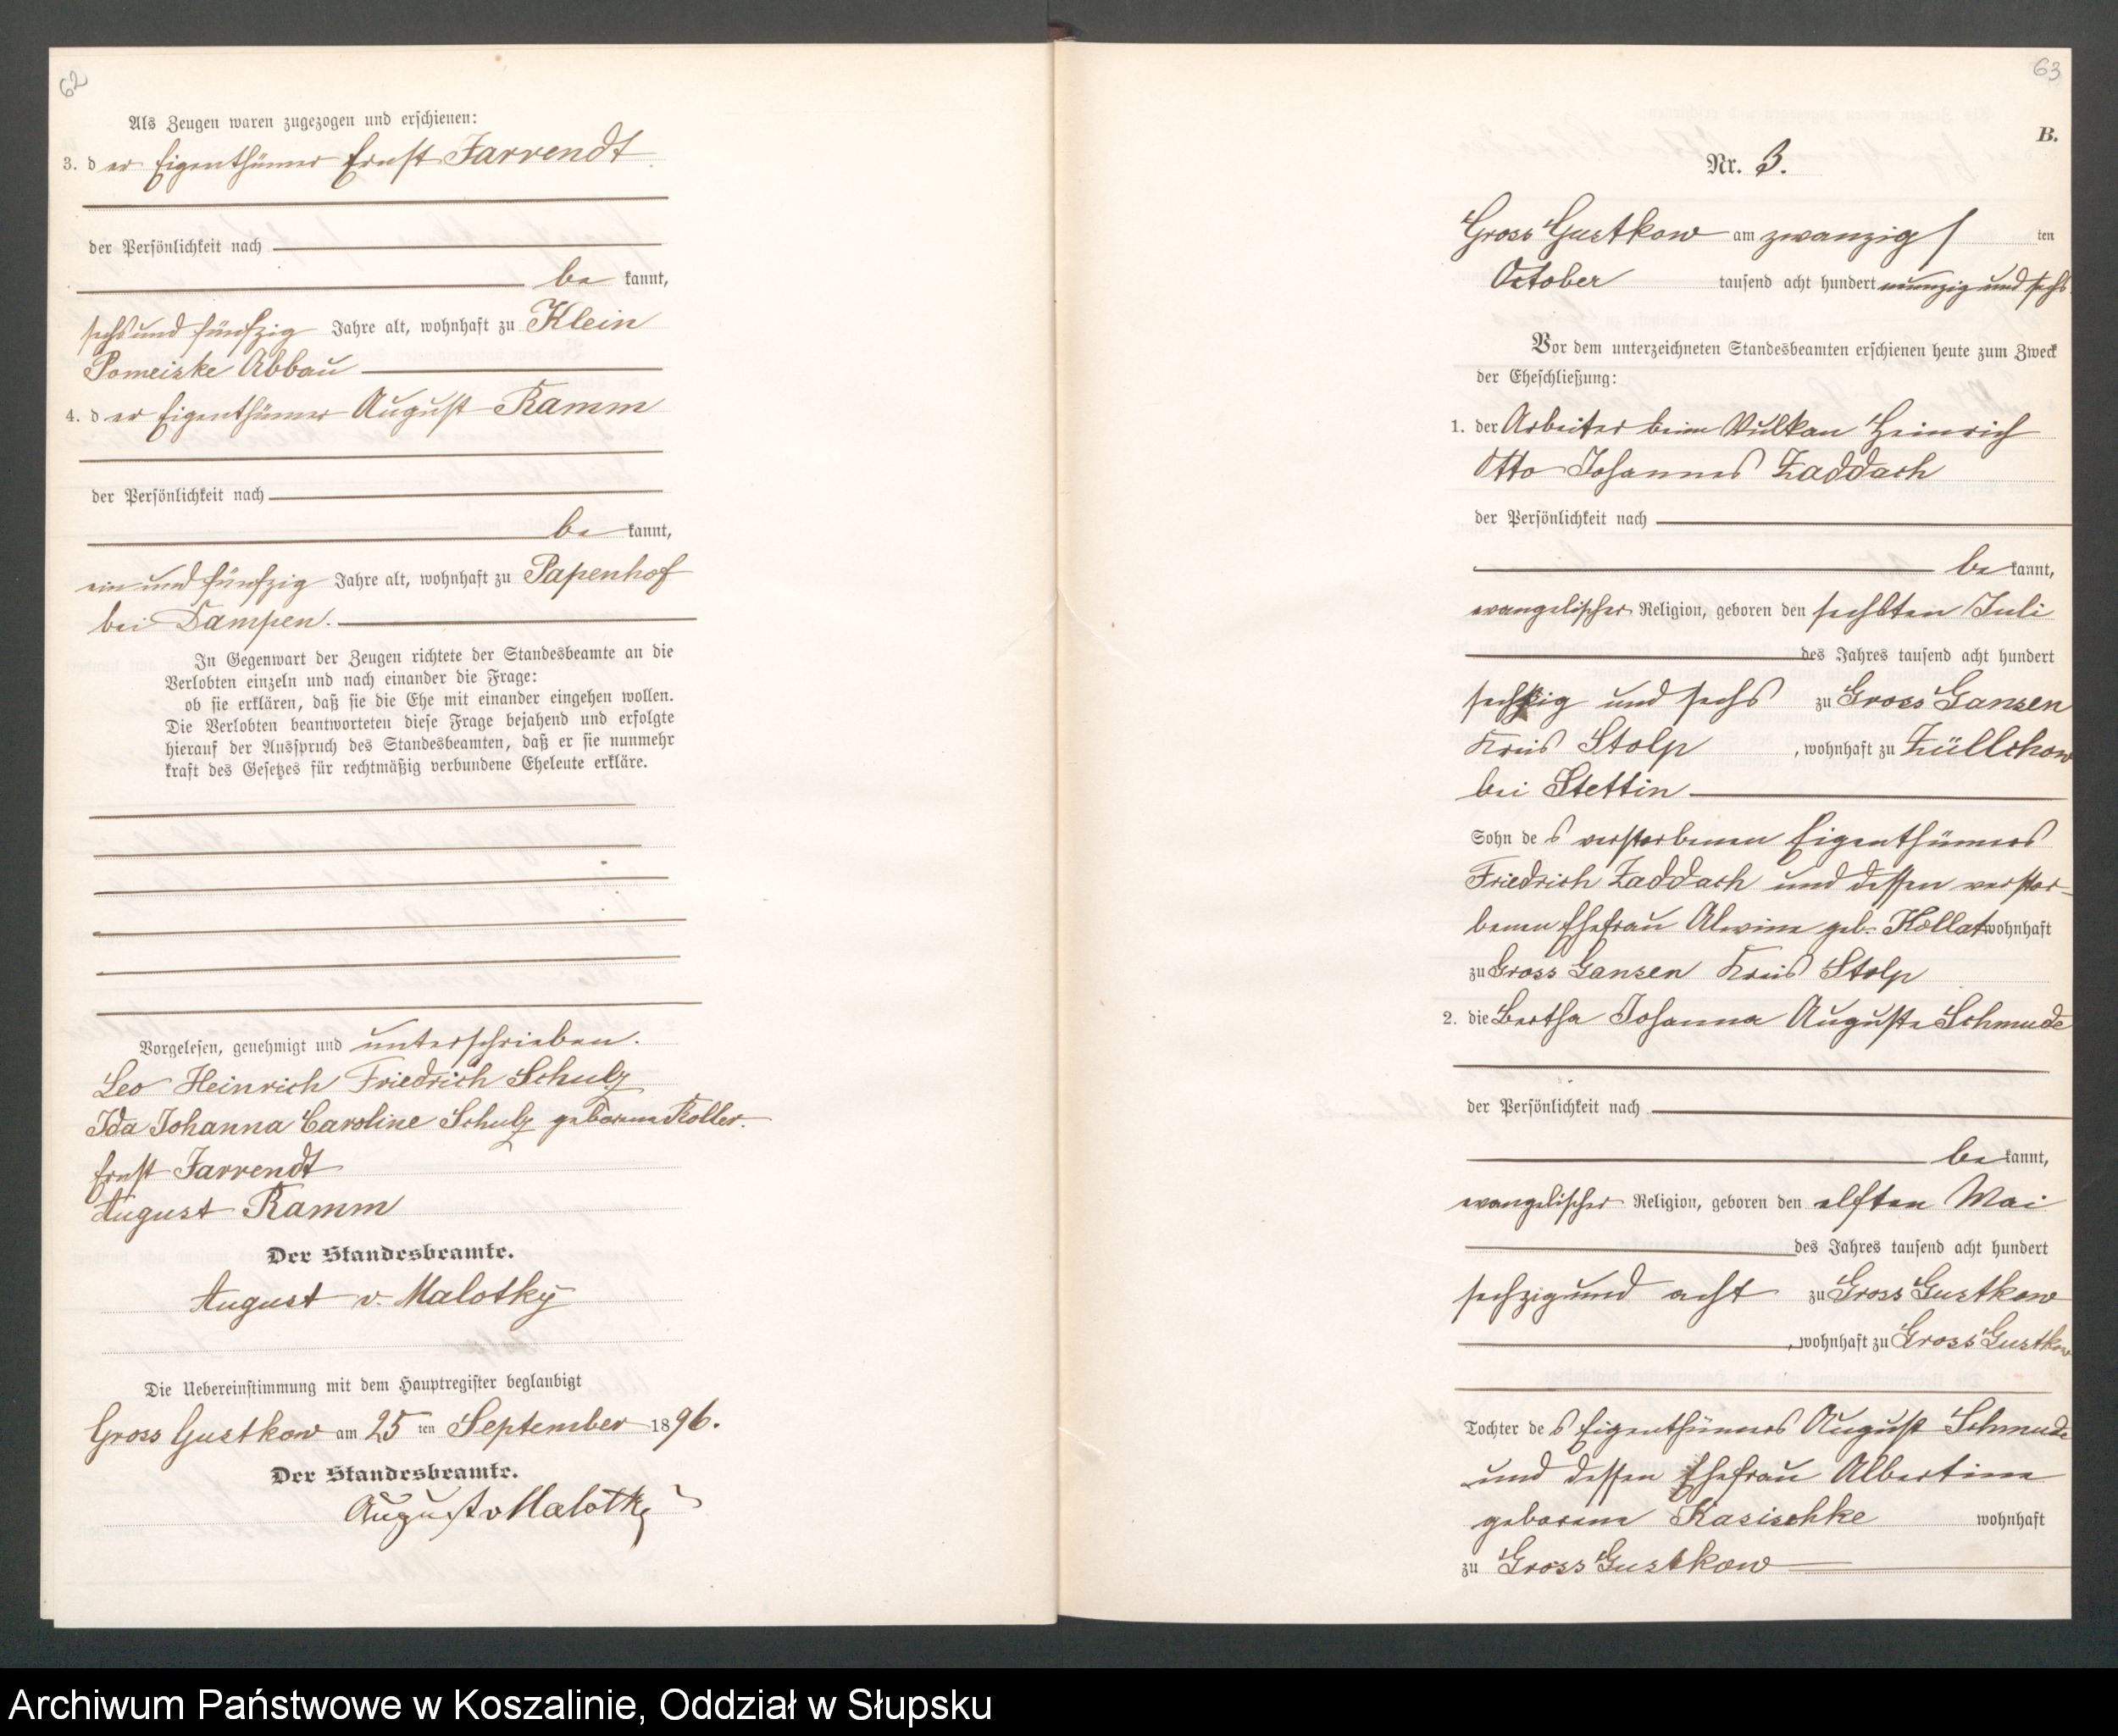 62
Als Zeugen waren zugezogen und erschienen:
3. der Eigenthümer Ernst Jarrendt
der Persönlichkeit nach
bekannt,
sechs und fünfzig Jahre alt, wohnhaft zu Klein
Pomeiske Abbau
4. der Eigenthümer August Ramm
der Persönlichkeit nach
bekannt,
ein und fünfzig Jahre alt, wohnhaft zu Papenhof
bei Dampen.
In Gegenwart der Zeugen richtete der Standesbeamte an die
Verlobten einzeln und nach einander die Frage:
ob sie erklären, daß sie die Ehe mit einander eingehen wollen.
Die Verlobten beantworteten diese Frage bejahend und erfolgte
hierauf der Ausspruch des Standesbeamten, daß er sie nunmehr
kraft des Gesetzes für rechtmäßig verbundene Eheleute erkläre.
Vorgelesen, genehmigt und unterschrieben.
Leo Heinrich Friedrich Schulz
Ida Johanna Caroline Schulz geborene Koller.
Ernst Jarrendt
August Ramm
Der Standesbeamte.
August v. Malotky
Die Uebereinstimmung mit dem Hauptregister beglaubigt
Gross Gustkow am 25 ten September 1896.
Der Standesbeamte.
August v Malotky
63
B.
Nr. 3.
Gross Gustkow am zwanzigsten
October tausend acht hundert neunzig und sechs
Vor dem unterzeichneten Standesbeamten erschienen heute zum Zweck
der Eheschließung:
1. der Arbeiter beim Vulkan Heinrich
Otto Johannes Zaddach
der Persönlichkeit nach
bekannt,
evangelischer Religion, geboren den sechsten Juli
des Jahres tausend acht hundert
sechzig und sechs zu Gross Gansen
Kreis Stolp, wohnhaft zu Züllchow
bei Stettin
Sohn des verstorbenen Eigenthümers
Friedrich Zaddach und dessen verstor-
benen Ehefrau Alwine geb. Kollat wohnhaft
zu Gross Gansen Kreis Stolp
2. die Bertha Johanna Auguste Schmude
der Persönlichkeit nach
bekannt,
evangelischer Religion, geboren den elften Mai
des Jahres tausend acht hundert
sechzig und acht zu Gross Gustkow
, wohnhaft zu Gross Gustkow
Tochter des Eigenthümers August Schmude
und dessen Ehefrau Albertine
geborene Kasischke wohnhaft
zu Gross Gustkow
Archiwum Państwowe w Koszalinie, Oddział w Słupsku